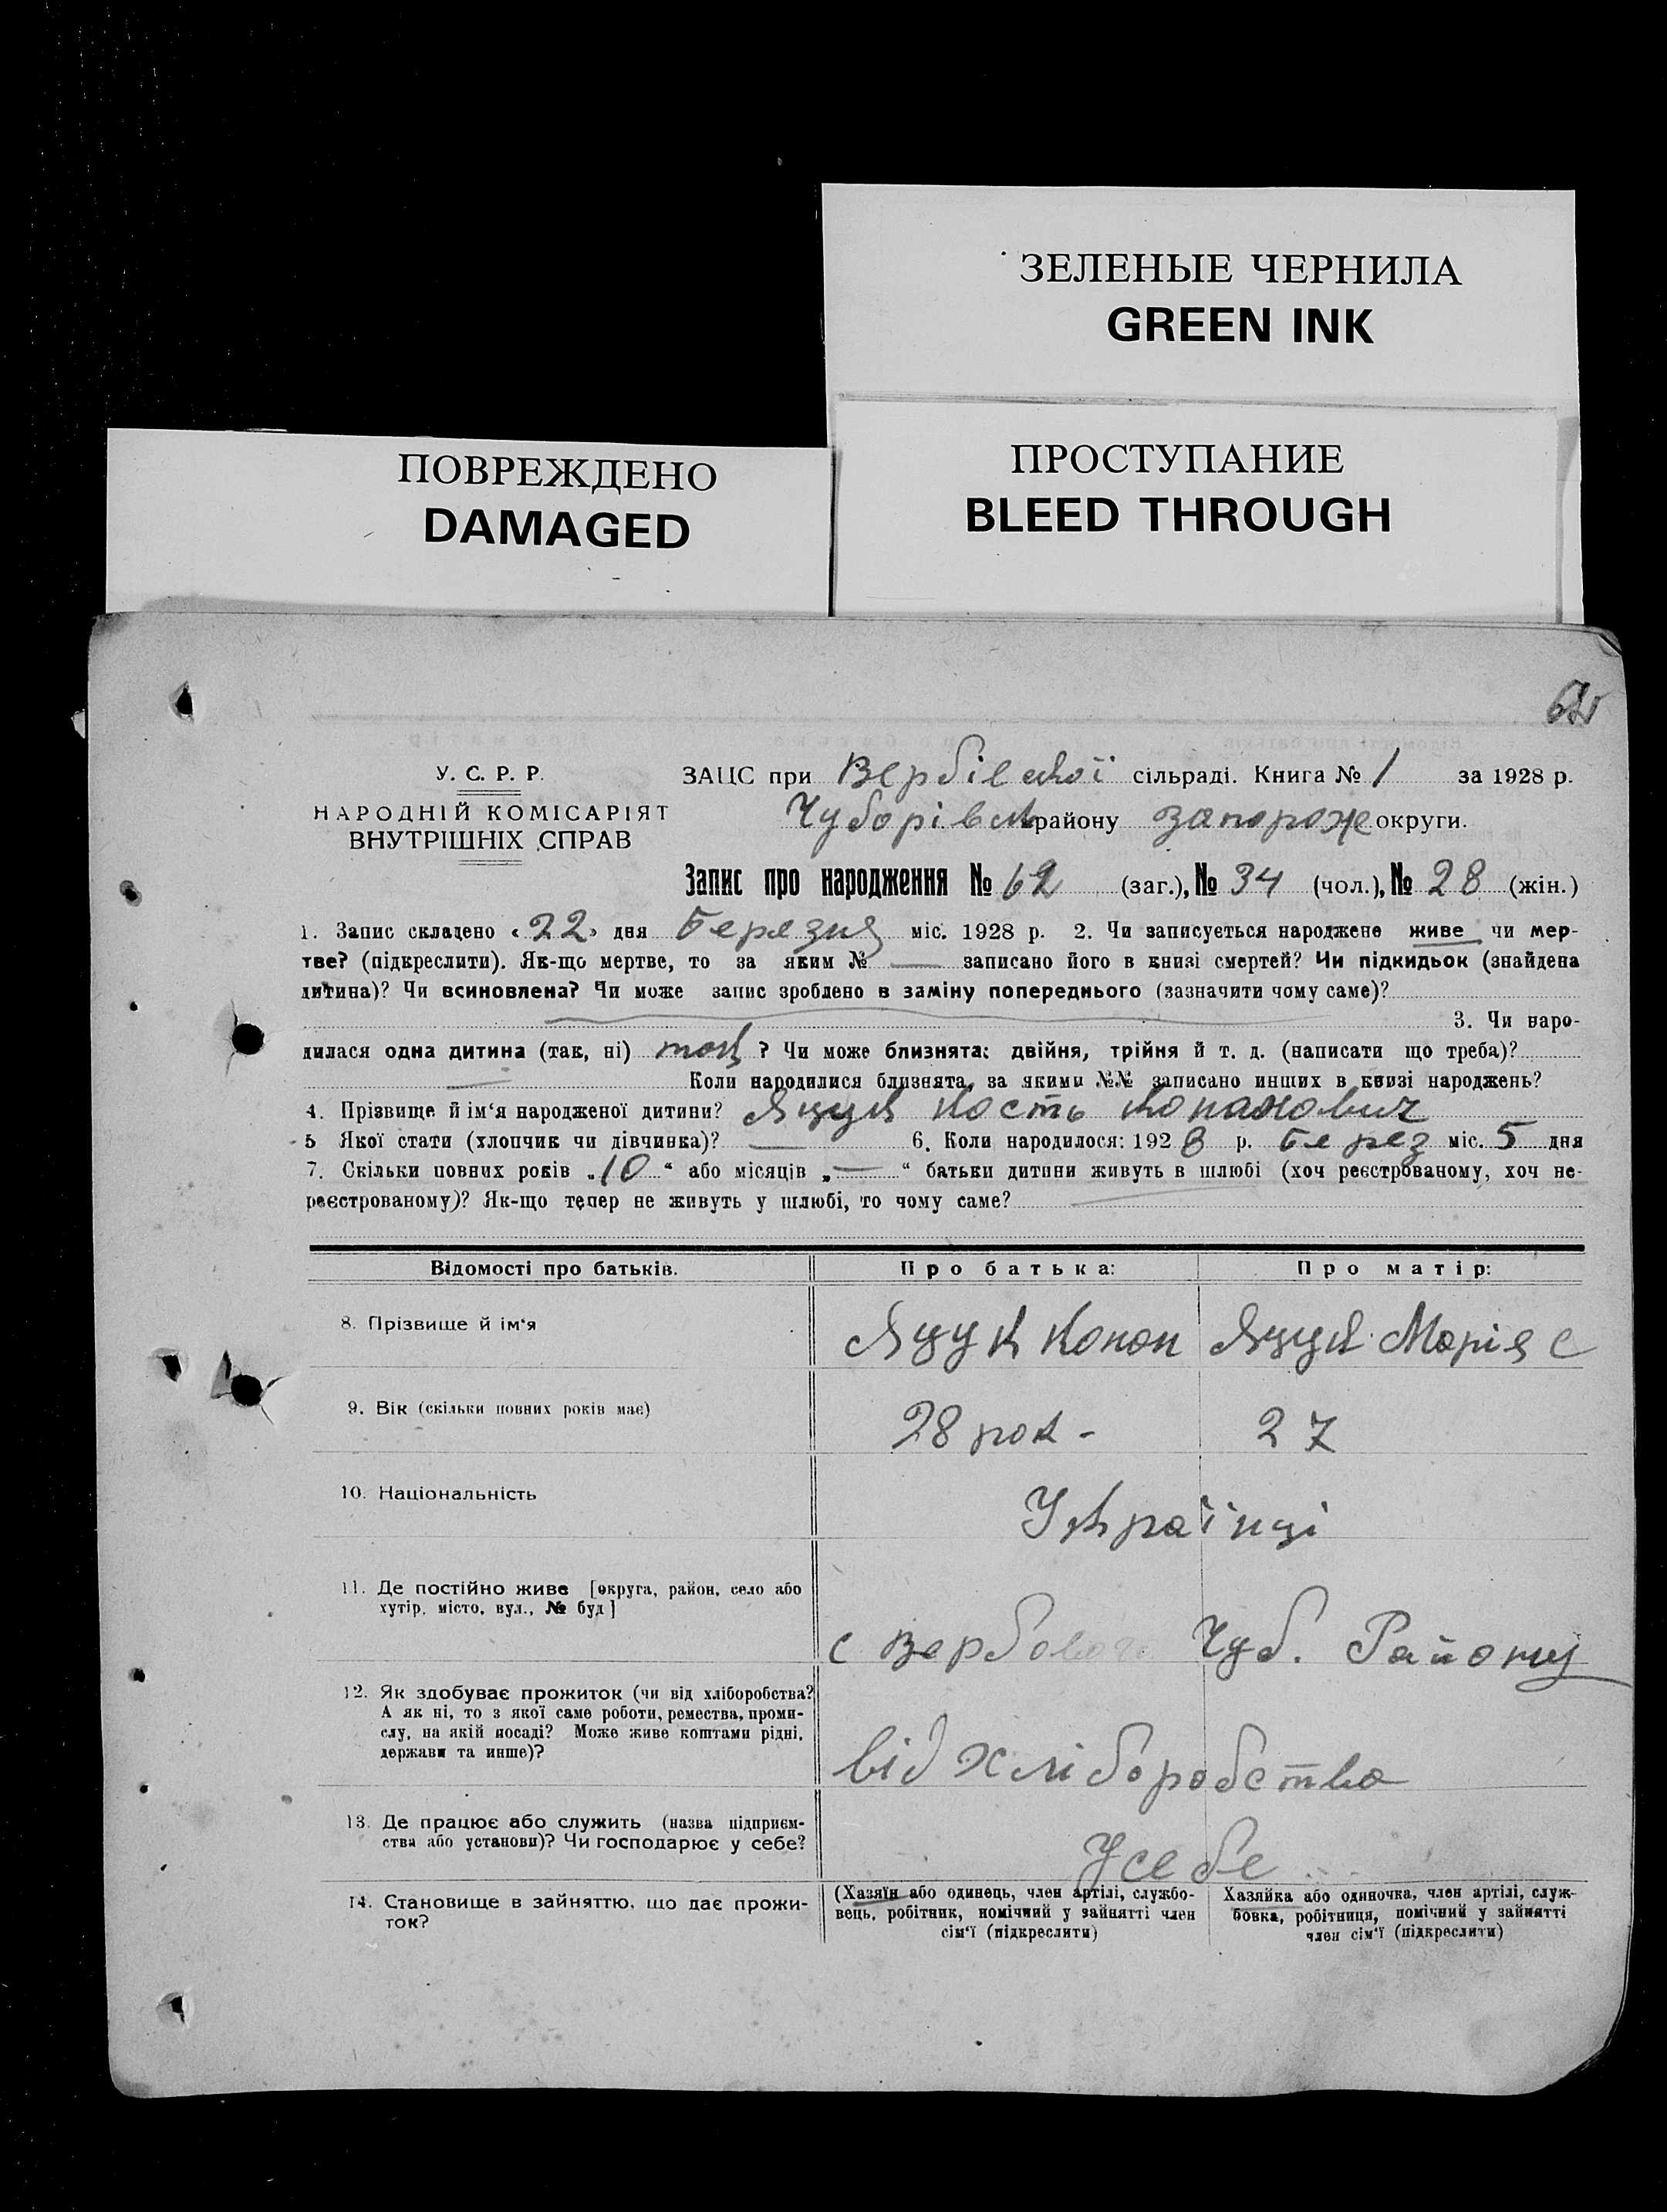 ЗЕЛЕНЫЕ ЧЕРНИЛА
GREEN INK
ПОВРЕЖДЕНО
DAMAGED
ПРОСТУПАНИЕ
BLEED THROUGH
У. С. Р. Р.
НАРОДНІЙ КОМІСАРІЯТ
ВНУТРІШНІХ СПРАВ
ЗАЦС при Вербівської сільраді. Книга № 1 за 1928 р.
Чубарівськ району Запорож округи.
Запис про народження № 62 (заг.), № 34 (чол.), № 28 (жін.)
1. Запис складено «22» дня Березня міс. 1928 р. 2. Чи записується народжене живе чи мер-
тве? (підкреслити). Як-що мертве, то за яким № — записано його в книзі смертей? Чи підкидьок (знайдена
дитина)? Чи всиновлена? Чи може запис зроблено в заміну попереднього (зазначити чому саме)?
3. Чи наро-
дилася одна дитина (так, ні) так ? Чи може близнята: двійня, трійня й т. д. (написати що треба)?
— Коли народилися близнята, за якими №№ записано инших в книзі народжень?
4. Прізвище й ім‘я народженої дитини? Яцук Кость Конанович
5 Якої стати (хлопчик чи дівчинка)? — 6. Коли народилося: 1928 р. берез міс. 5 дня
7. Скільки повних років „10“ або місяців „—“ батьки дитини живуть в шлюбі (хоч реєстрованому, хоч не-
реєстрованому)? Як-що тепер не живуть у шлюбі, то чому саме? —
Відомості про батьків. Про батька: Про матір:
8. Прізвище й ім‘я Яцук Конон Яцук Марія С
9. Вік (скільки повних років має) 28 рок - 27
10. Національність Українці
11. Де постійно живе [округа, район, село або
хутір, місто, вул., № буд] с Вербового Чуб. Району
12. Як здобуває прожиток (чи від хліборобства?
А як ні, то з якої саме роботи, ремества, проми-
слу, на якій посаді? Може живе коштами рідні,
держави та инше)? від хліборобства
13. Де працює або служить (назва підприєм-
ства або установи)? Чи господарює у себе? У себе
14. Становище в зайняттю, що дає прожи-
ток?
(Хазяїн або одинець, член артілі, службо-
вець, робітник, помічний у зайнятті член
сім‘ї (підкреслити)
Хазяйка або одиночка, член артілі, служ-
бовка, робітниця, помічний у зайнятті
член сім‘ї (підкреслити)